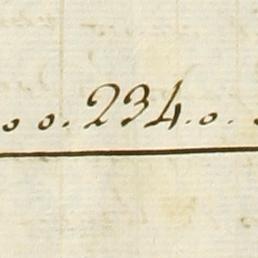 o o. 234. o.